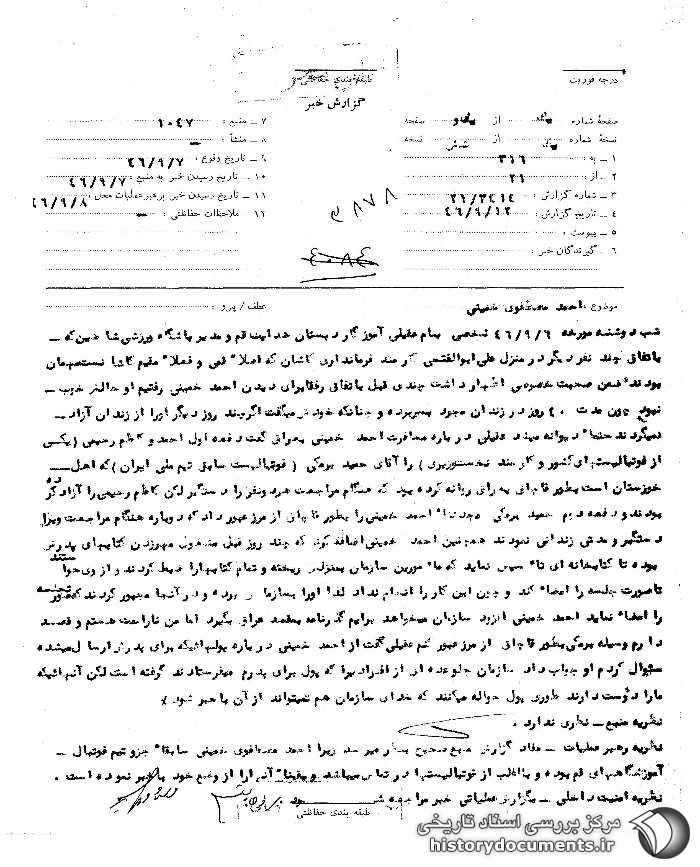 طبقه بندی حفاظتی
گزارش خبر
درجه فوریت
صفحه شماره از صفحه
نسخه شماره از نسخه
۱ ـ به : ۳۱۶
۲ ـ از : ۲۱
۳ ـ شماره گزارش : ۲۱/۳۴۱۴
۴ ـ تاریخ گزارش : ۴۶/۹/۱۲
۵ ـ پیوست :
۶ ـ گیرندگان خبر :
۷ ـ منبع : ۱۰۴۷
۸ ـ منشأ : ـ
۹ ـ تاریخ وقوع : ۴۶/۹/۷
۱۰ ـ تاریخ رسیدن خبر به منبع : ۴۶/۹/۷
۱۱ ـ تاریخ رسیدن خبر برهبر عملیات محل : ۴۶/۹/۸
۱۲ ـ ملاحظات حفاظتی :
۴۰۸۴
موضوع : احمد مصطفوی خمینی عطف / پیرو :
شب دوشنبه مورخه ۴۶/۹/۶ شخصی بنام عقیلی آموزگار دبستان هدایت قم و مدیر باشگاه ورزشی شاهین که ـ
باتفاق چند نفر دیگر در منزل علی ابوالفتحی کارمند فرمانداری کاشان که اصلا قمی و فعلا مقیم کاشانست میهمان
بودند ضمن صحبت خصوصی اظهار داشت چندی قبل باتفاق رفقا برای دیدن احمد خمینی رفتیم او حالش خوب ـ
نبود چون مدت ۴۰ روز در زندان مجرد بسر برده و چنانکه خودش میگفت اگر چند روز دیگر او را از زندان آزاد ـ
نمیکردند حتما دیوانه میشد عقیلی درباره مسافرت احمد خمینی بعراق گفت دفعه اول احمد و کاظم رحیمی (یکی
از فوتبالیستهای کشور و کارمند نخست وزیری) را آقای حمید برمکی (فوتبالیست سابق تیم ملی ایران) که اهل
خوزستان است بطور قاچاق بعراق روانه کرده بود که هنگام مراجعت هر دو نفر را دستگیر لکن کاظم رحیمی را آزاد کرده
بودند و دفعه دوم حمید برمکی مجددا احمد خمینی را بطور قاچاق از مرز عبور داد که دوباره هنگام مراجعت ویرا
دستگیر و مدتی زندانی نمودند همچنین احمد خمینی اضافه کرد که چند روز قبل مشغول مهر زدن کتابهای پدرش
بوده تا کتابخانه ای تأسیس نماید که مأمورین سازمان بمنزلش ریخته و تمام کتابها را ضبط کردند و از وی خواستند
تا صورت جلسه را امضاء کند و چون این کار را انجام نداد لذا او را بسازمان برده و در آنجا مجبور کردند که صورتجلسه
را امضاء نماید احمد خمینی افزود سازمان میخواهد برایم گذرنامه بمقصد عراق بگیرد اما من ناراحت هستم و قصد
دارم وسیله برمکی بطور قاچاق از مرز عبور کنم عقیلی گفت از احمد خمینی درباره پولهائیکه برای پدرش ارسال میشده
سئوال کردم او جواب داد سازمان جلو عده ای از افرادیرا که پول برای پدرم میفرستادند گرفته است لکن آنهائیکه
ما را دوست دارند طوری پول حواله میکنند که خدای سازمان هم نمیتواند از آن باخبر شود .
نظریه منبع ـ نظری ندارد .
نظریه رهبر عملیات ـ مفاد گزارش منبع صحیح بنظر میرسد زیرا احمد مصطفوی خمینی سابقا جزو تیم فوتبال ـ
آموزشگاههای قم بوده و با اغلب از فوتبالیستها در تماس میباشد و یقینا آنها را از وضع خود باخبر نموده است .
نظریه امنیت داخلی ـ بگزارش عملیاتی خبر مراجعه شود
طبقه بندی حفاظتی
مرکز بررسی اسناد تاریخی
historydocuments.ir